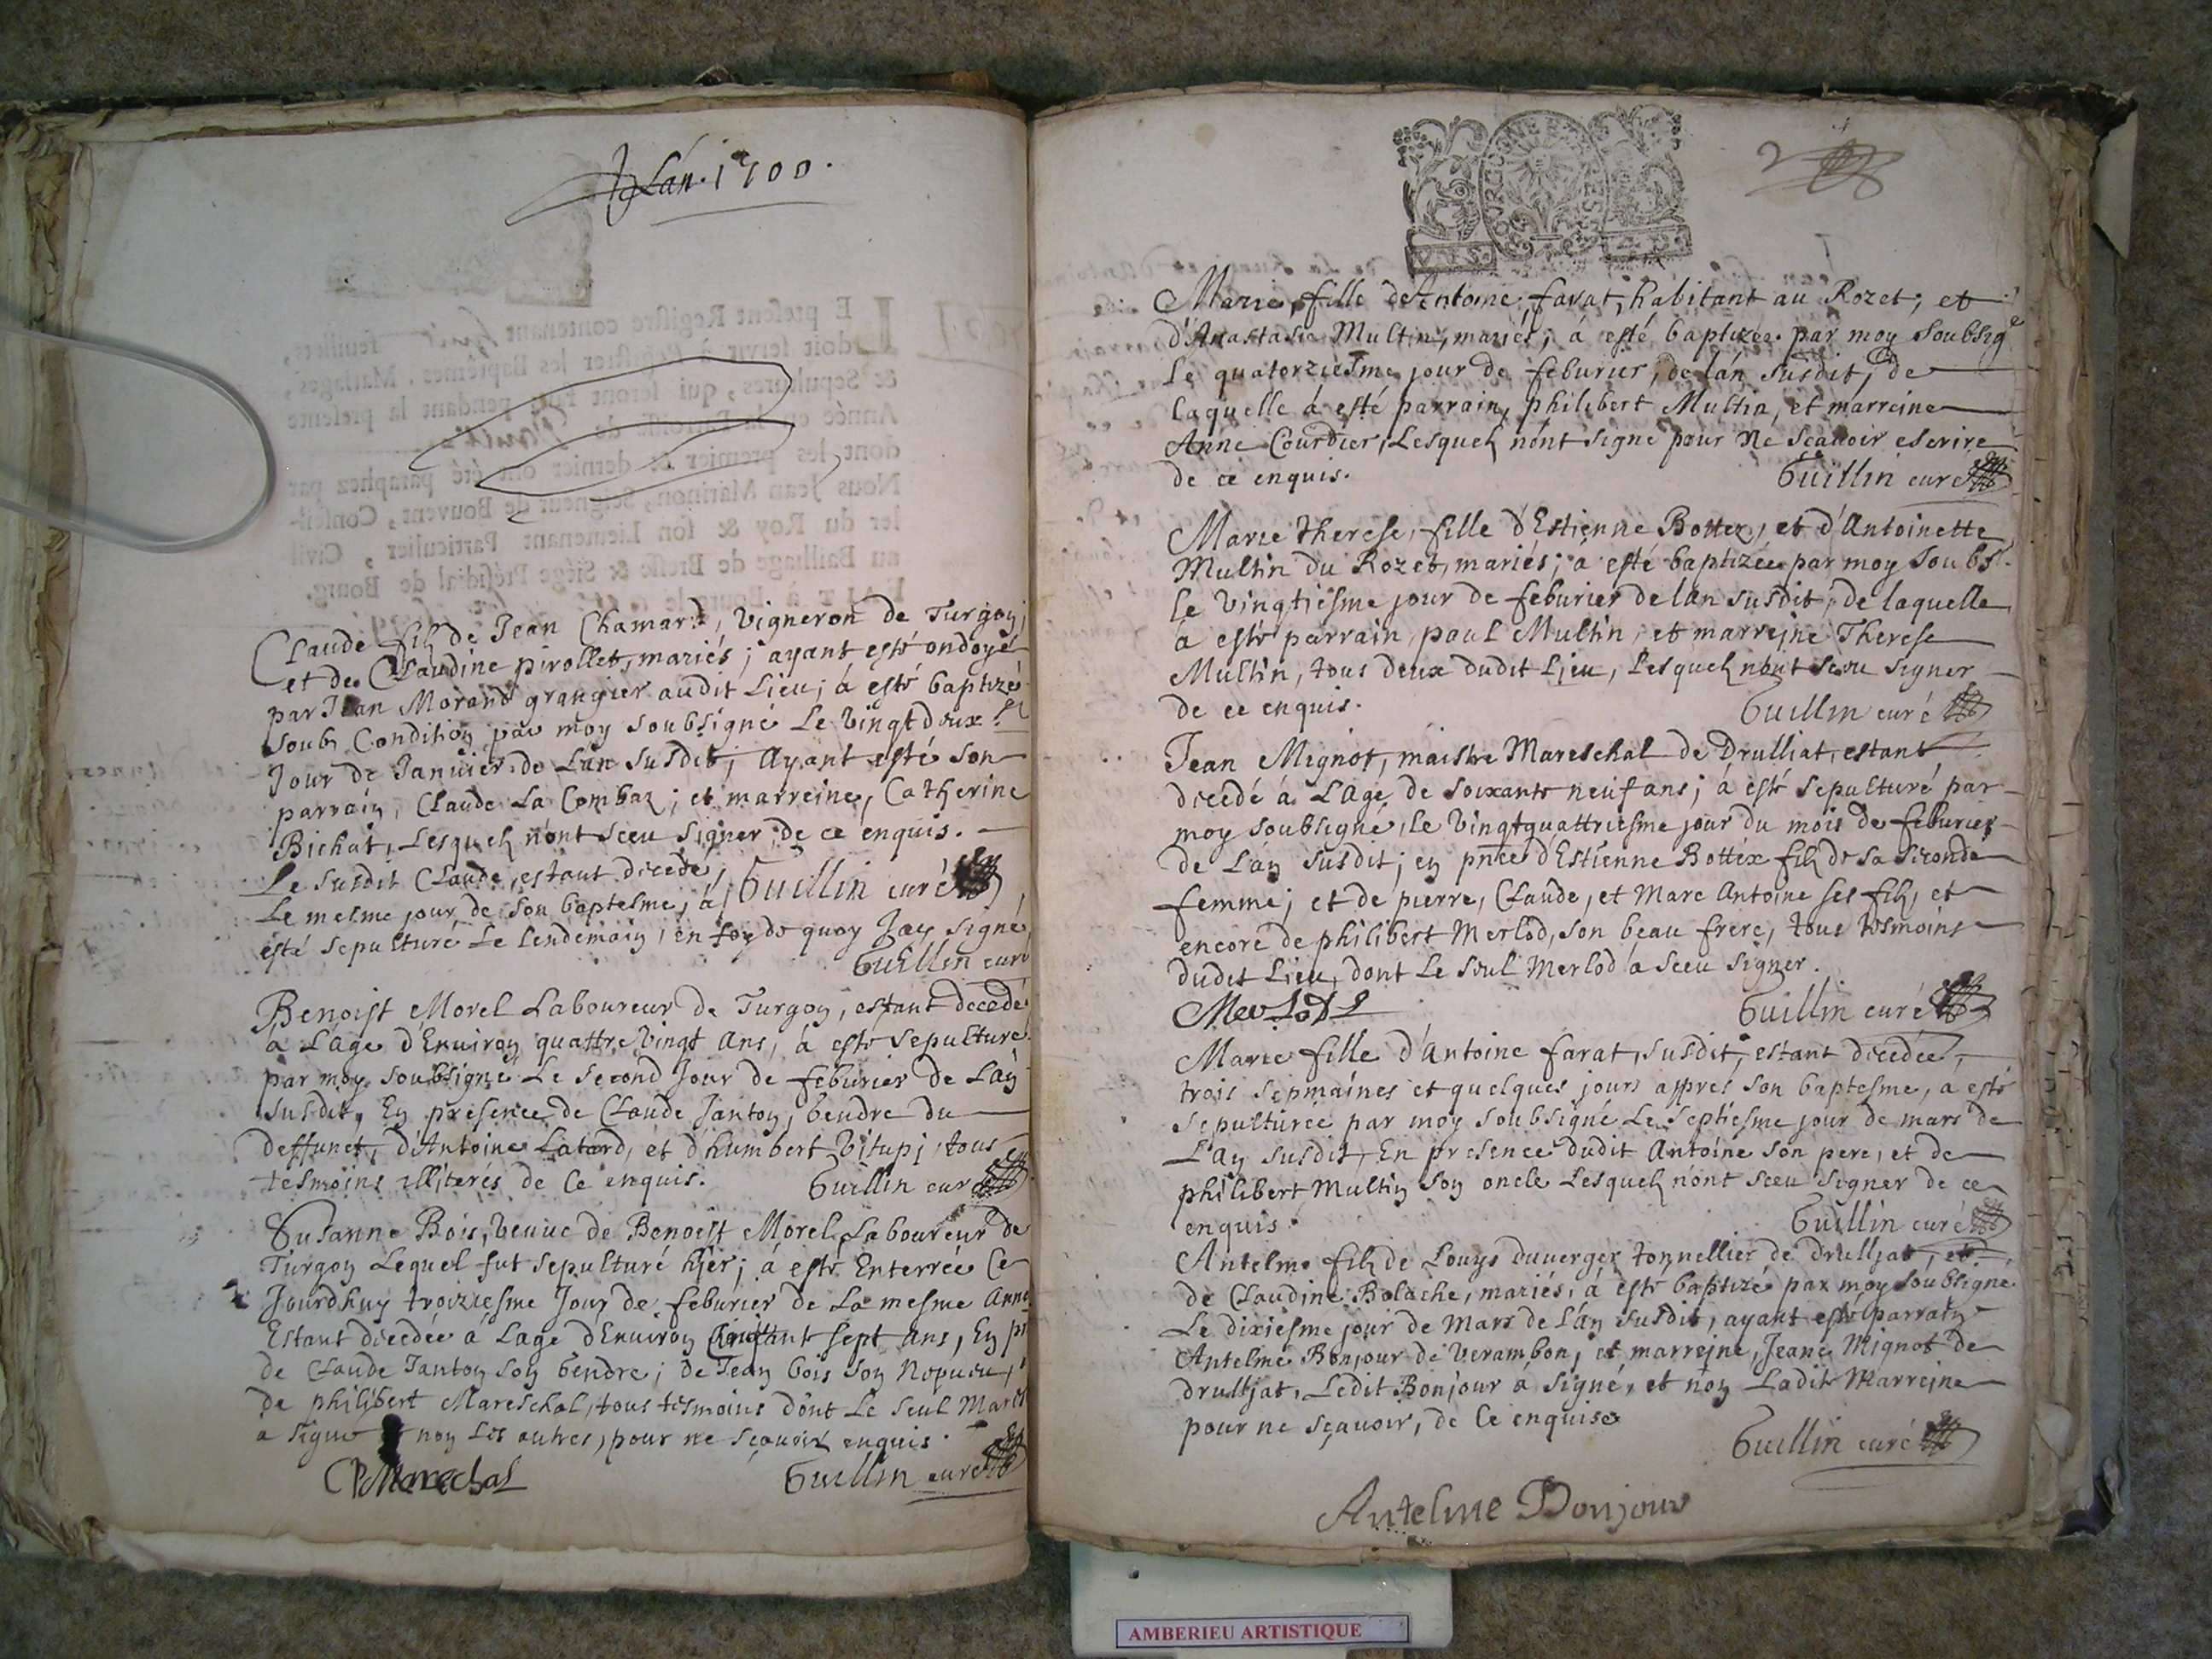 Lán. 1700.
Claude filz de Jean Chamard, vigneron de Turgon,
et de Claudine pirollet, mariés; ayant esté ondoyé
par Jean Morand grangier audit Lieu; á esté baptizé
soubz Condition par moy soubsigné Le vingtdeux.e
Jour de Januier de Lán susdit; Ayant esté son
parrain, Claude La Combaz; et marreine, Catherine
Bichat, Lesquelz n'ont sceu signer, de ce enquis.
Le susdit Claude, estant decedé,
Le mesme jour de son baptesme, á
Guillin curé
esté sepulturé Le lendemain, en foy de quoy Jay signé,
Guillin curé
Benoist Morel Laboureur de Turgon, estant decedé
á L'áge d'Enuiron quattre vingt Ans, á esté sepulturé
par moy soubsigné Le second Jour de feburier de Lán
susdit, En presence de Claude Janton, Gendre du
deffunct, d'Antoine Latard, et d'humbert vitupi, tous
tesmoins illiterés de Ce enquis.
Guillin curé
Susanne Bois, veuue de Benoist Morel Laboureur de
Turgon Lequel fut sepulturé hier; á esté Enterrée Ce
Jourdhuy troiziesme Jour de feburier de La mesme Anné
Estant decedée á Lage d'Enuiron Cinqtante sept ans, En pr
de Claude Janton son Gendre; de Jean bois son Nepueu,
de philibert Mareschal, tous tesmoins dont Le seul Mares
a signé et non Les autres, pour ne sçauoir enquis.
PMarechal
Guillin curé
2
Marie, fille d'Antoine, farat, habitant au Rozet, et
d'Anastasie Multin, mariés; á esté baptizée par moy soubsigé
Le quatorziesme jour de feburier, de lán susdit, de
Laquelle á esté parrain, philibert Multin, et marreine
Anne Courdier, Lesquelz nónt signé pour Ne sçauoir escrire
de ce enquis.
Guillin curé
Marie Therese, fille d'Estienne Bottex, et d'Antoinette
Multin du Rozet, mariés; á esté baptizée par moy soubs.
Le vingtiesme jour de feburier de lan susdit, de laquelle
á esté parrain, paul Multin, et marreine Therese
Multin, tous deux dudit Lieu, Lesquelz nónt sceu signer
de ce enquis.
Guillin curé
Jean Mignot, maistre Mareschal de Drulliat, estant
decedé á Láge de soixante neuf ans; á esté sepulturé par
moy soubsigné, le vingtquattriesme jour du mois de feburier
de Lán susdit; en pnce d'Estienne Bottex filz de sa seconde
femme; et de pierre, Claude, et Marc Antoine ses filz, et
encore de philibert Merlod, son beau frere, tous tesmoins
dudit Lieu, dont Le seul Merlod a sceu signer.
Merlod
Guillin curé
Marie fille d'Antoine farat, susdit, estant decedée,
trois sepmaines et quelques jours appres son baptesme, a esté
sepulturée par moy soubsigné Le septiesme jour de mars de
L'an susdit, En presence dudit Antoine son pere, et de
philibert Multin son oncle Lesquelz nónt sceu signer de ce
enquis.
Guillin curé
Antelme filz de Louys duuerger tonnellier de drulliat, et
de Claudine Bolache, mariés, á esté baptizé par moy soubsigné
Le dixiesme jour de Mars de Lán susdit, ayant esté parrain
Antelme Bonjour de verambon, et marreine, Jeane Mignot de
drulliat, Ledit Bonjour á signé, et non Ladit Marreine
pour ne sçauoir, de Ce enquise
Guillin curé
Antelme Bonjour
AMBERIEU ARTISTIQUE